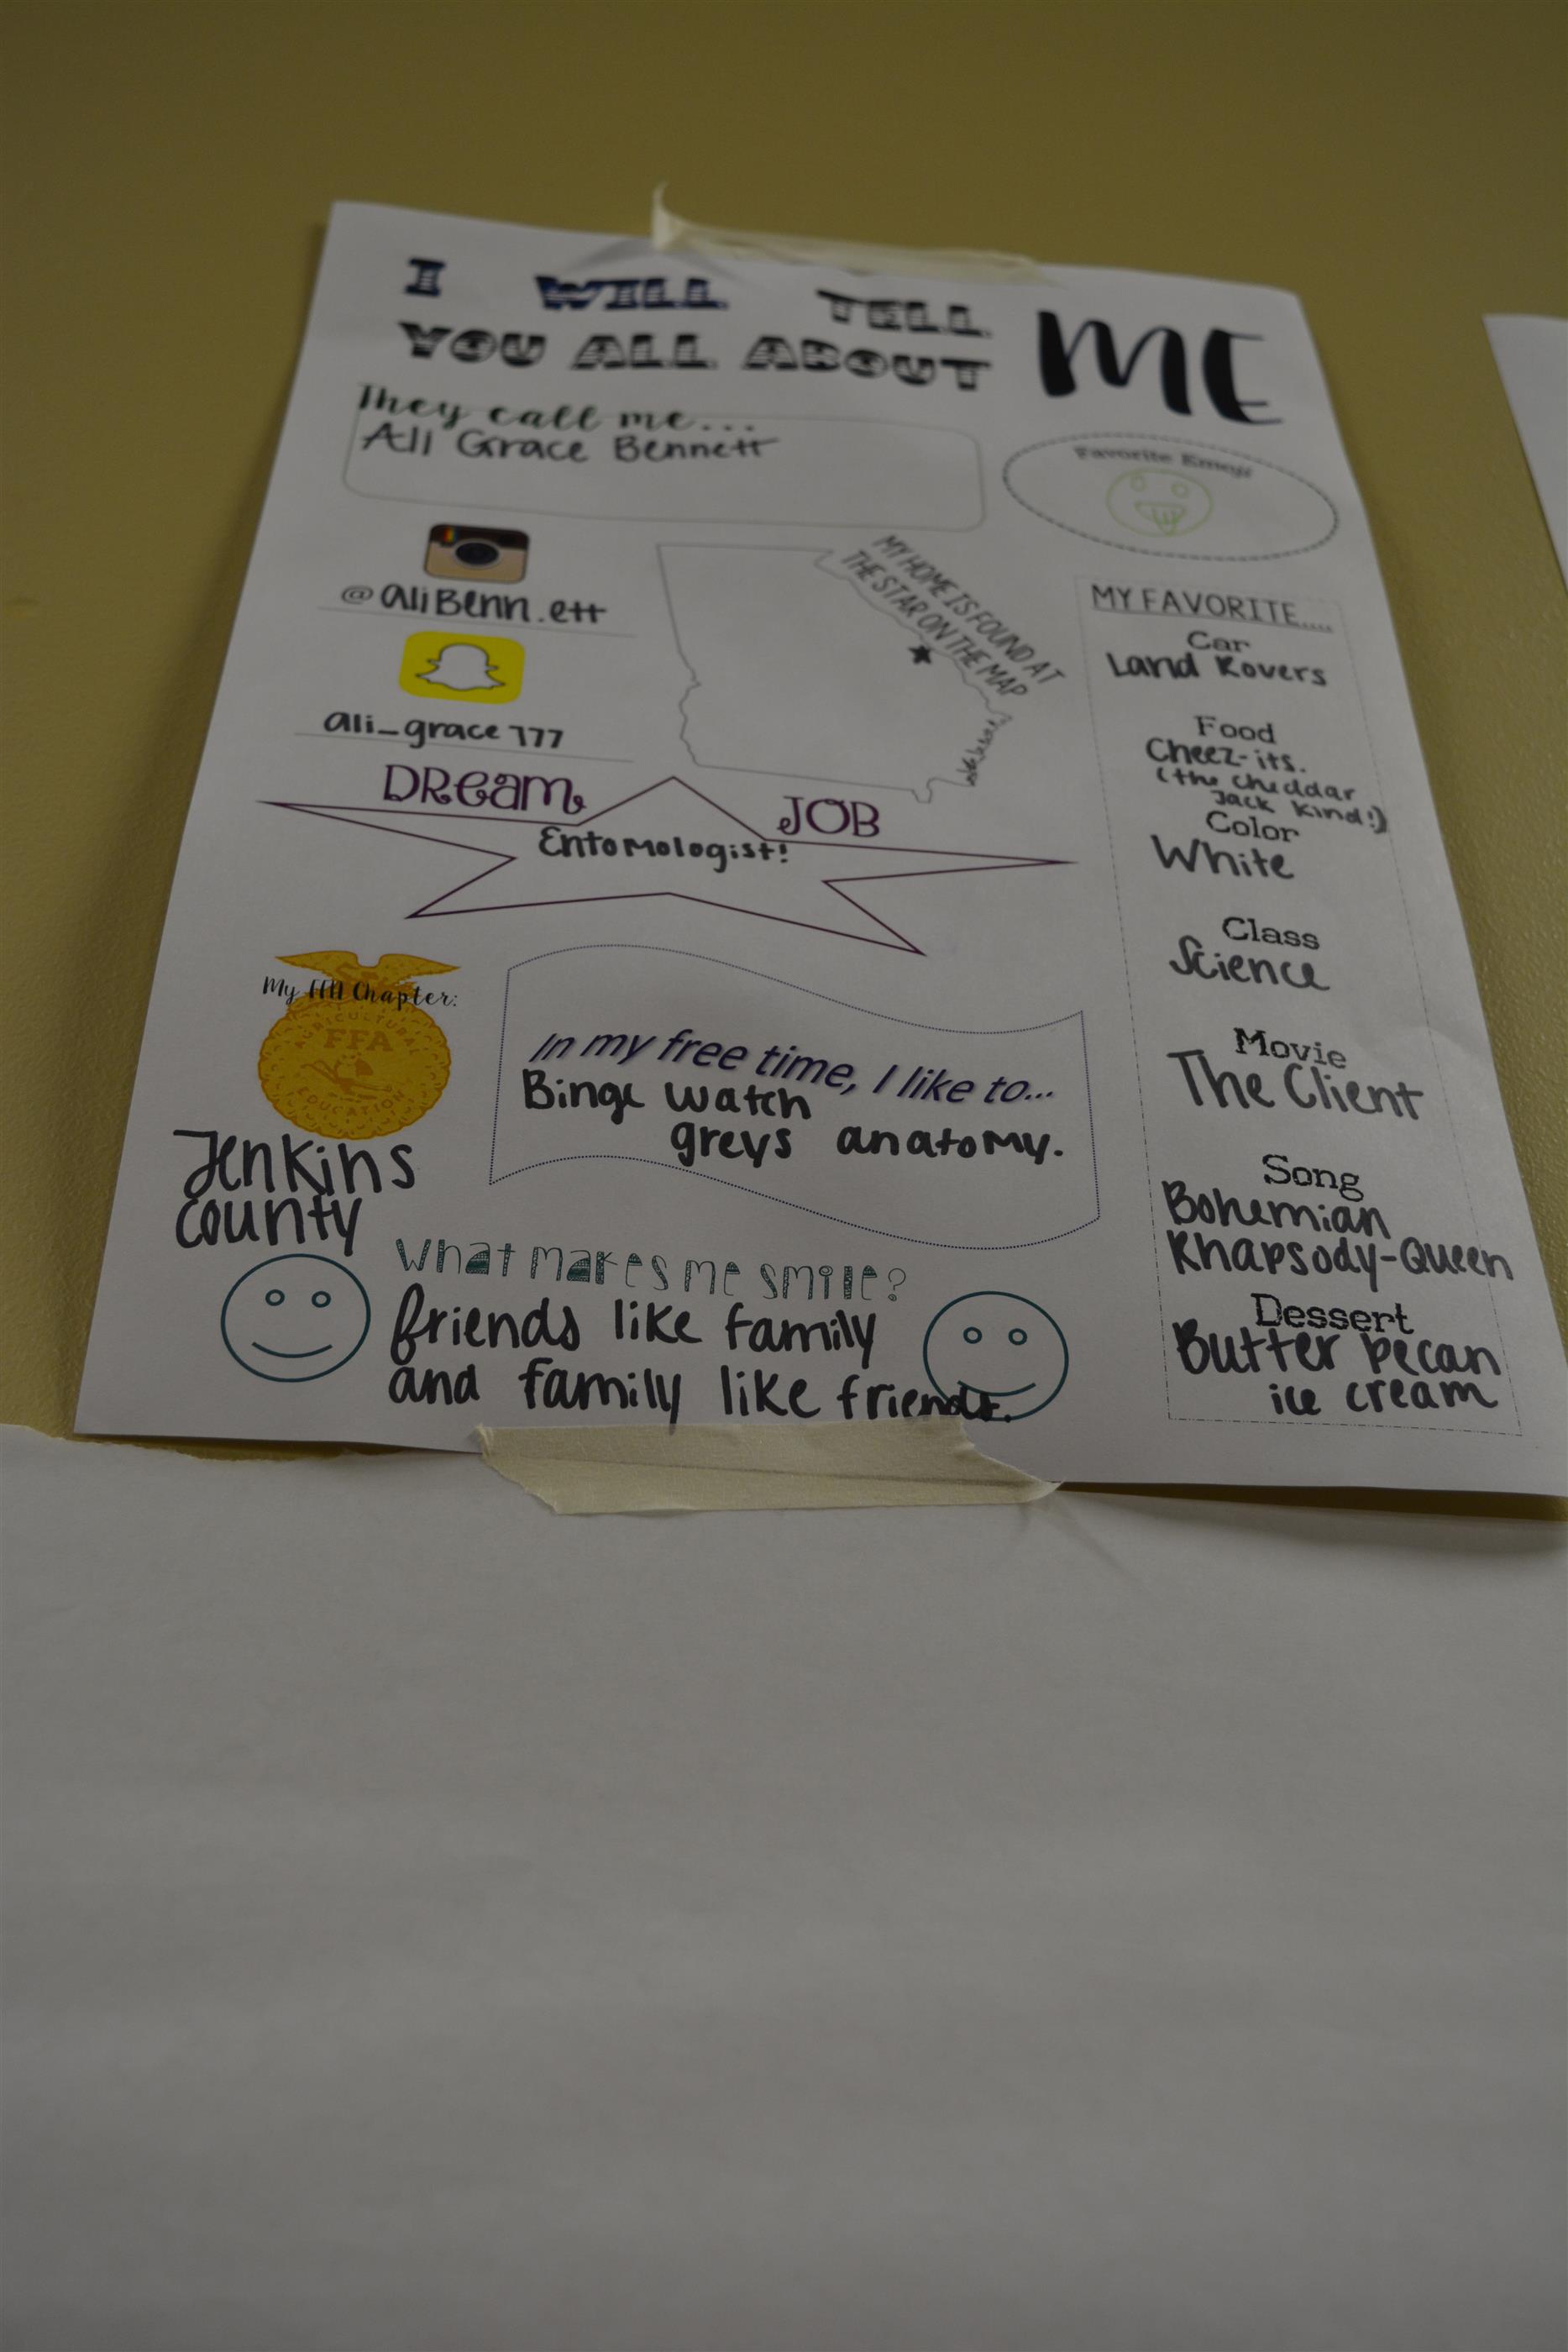 I WILL TELL
YOU ALL ABOUT ME
They call me...
Ali Grace Bennett
Favorite Emoji
@aliBenn.ett
ali_grace777
MY HOME IS FOUND AT
THE STAR ON THE MAP
DREAM JOB
Entomologist!
My FFA Chapter:
AGRICULTURAL
FFA
EDUCATION
Jenkins
county
In my free time, I like to...
Binge watch
greys anatomy.
What makes me smile?
friends like family
and family like friends.
MY FAVORITE....
Car
Land Rovers
Food
Cheez-its.
(the cheddar
Jack kind!)
Color
White
Class
Science
Movie
The Client
Song
Bohemian
Rhapsody-Queen
Dessert
Butter pecan
ice cream